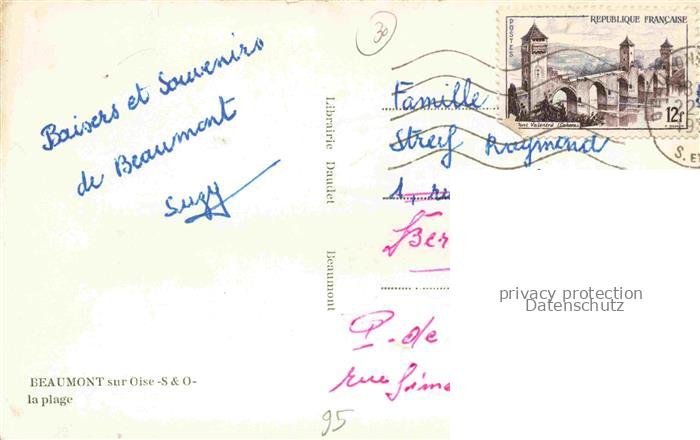 30
Baisers et Souvenirs
de Beaumont
Suzy
Librairie Daudet Beaumont
RÉPUBLIQUE FRANÇAISE
POSTES
Pont Valentré (Cahors)
12f
S. ET
Famille
Streif Raymond
1, ru
Ber
P. de
rue
privacy protection
Datenschutz
BEAUMONT sur Oise -S & O-
la plage
95